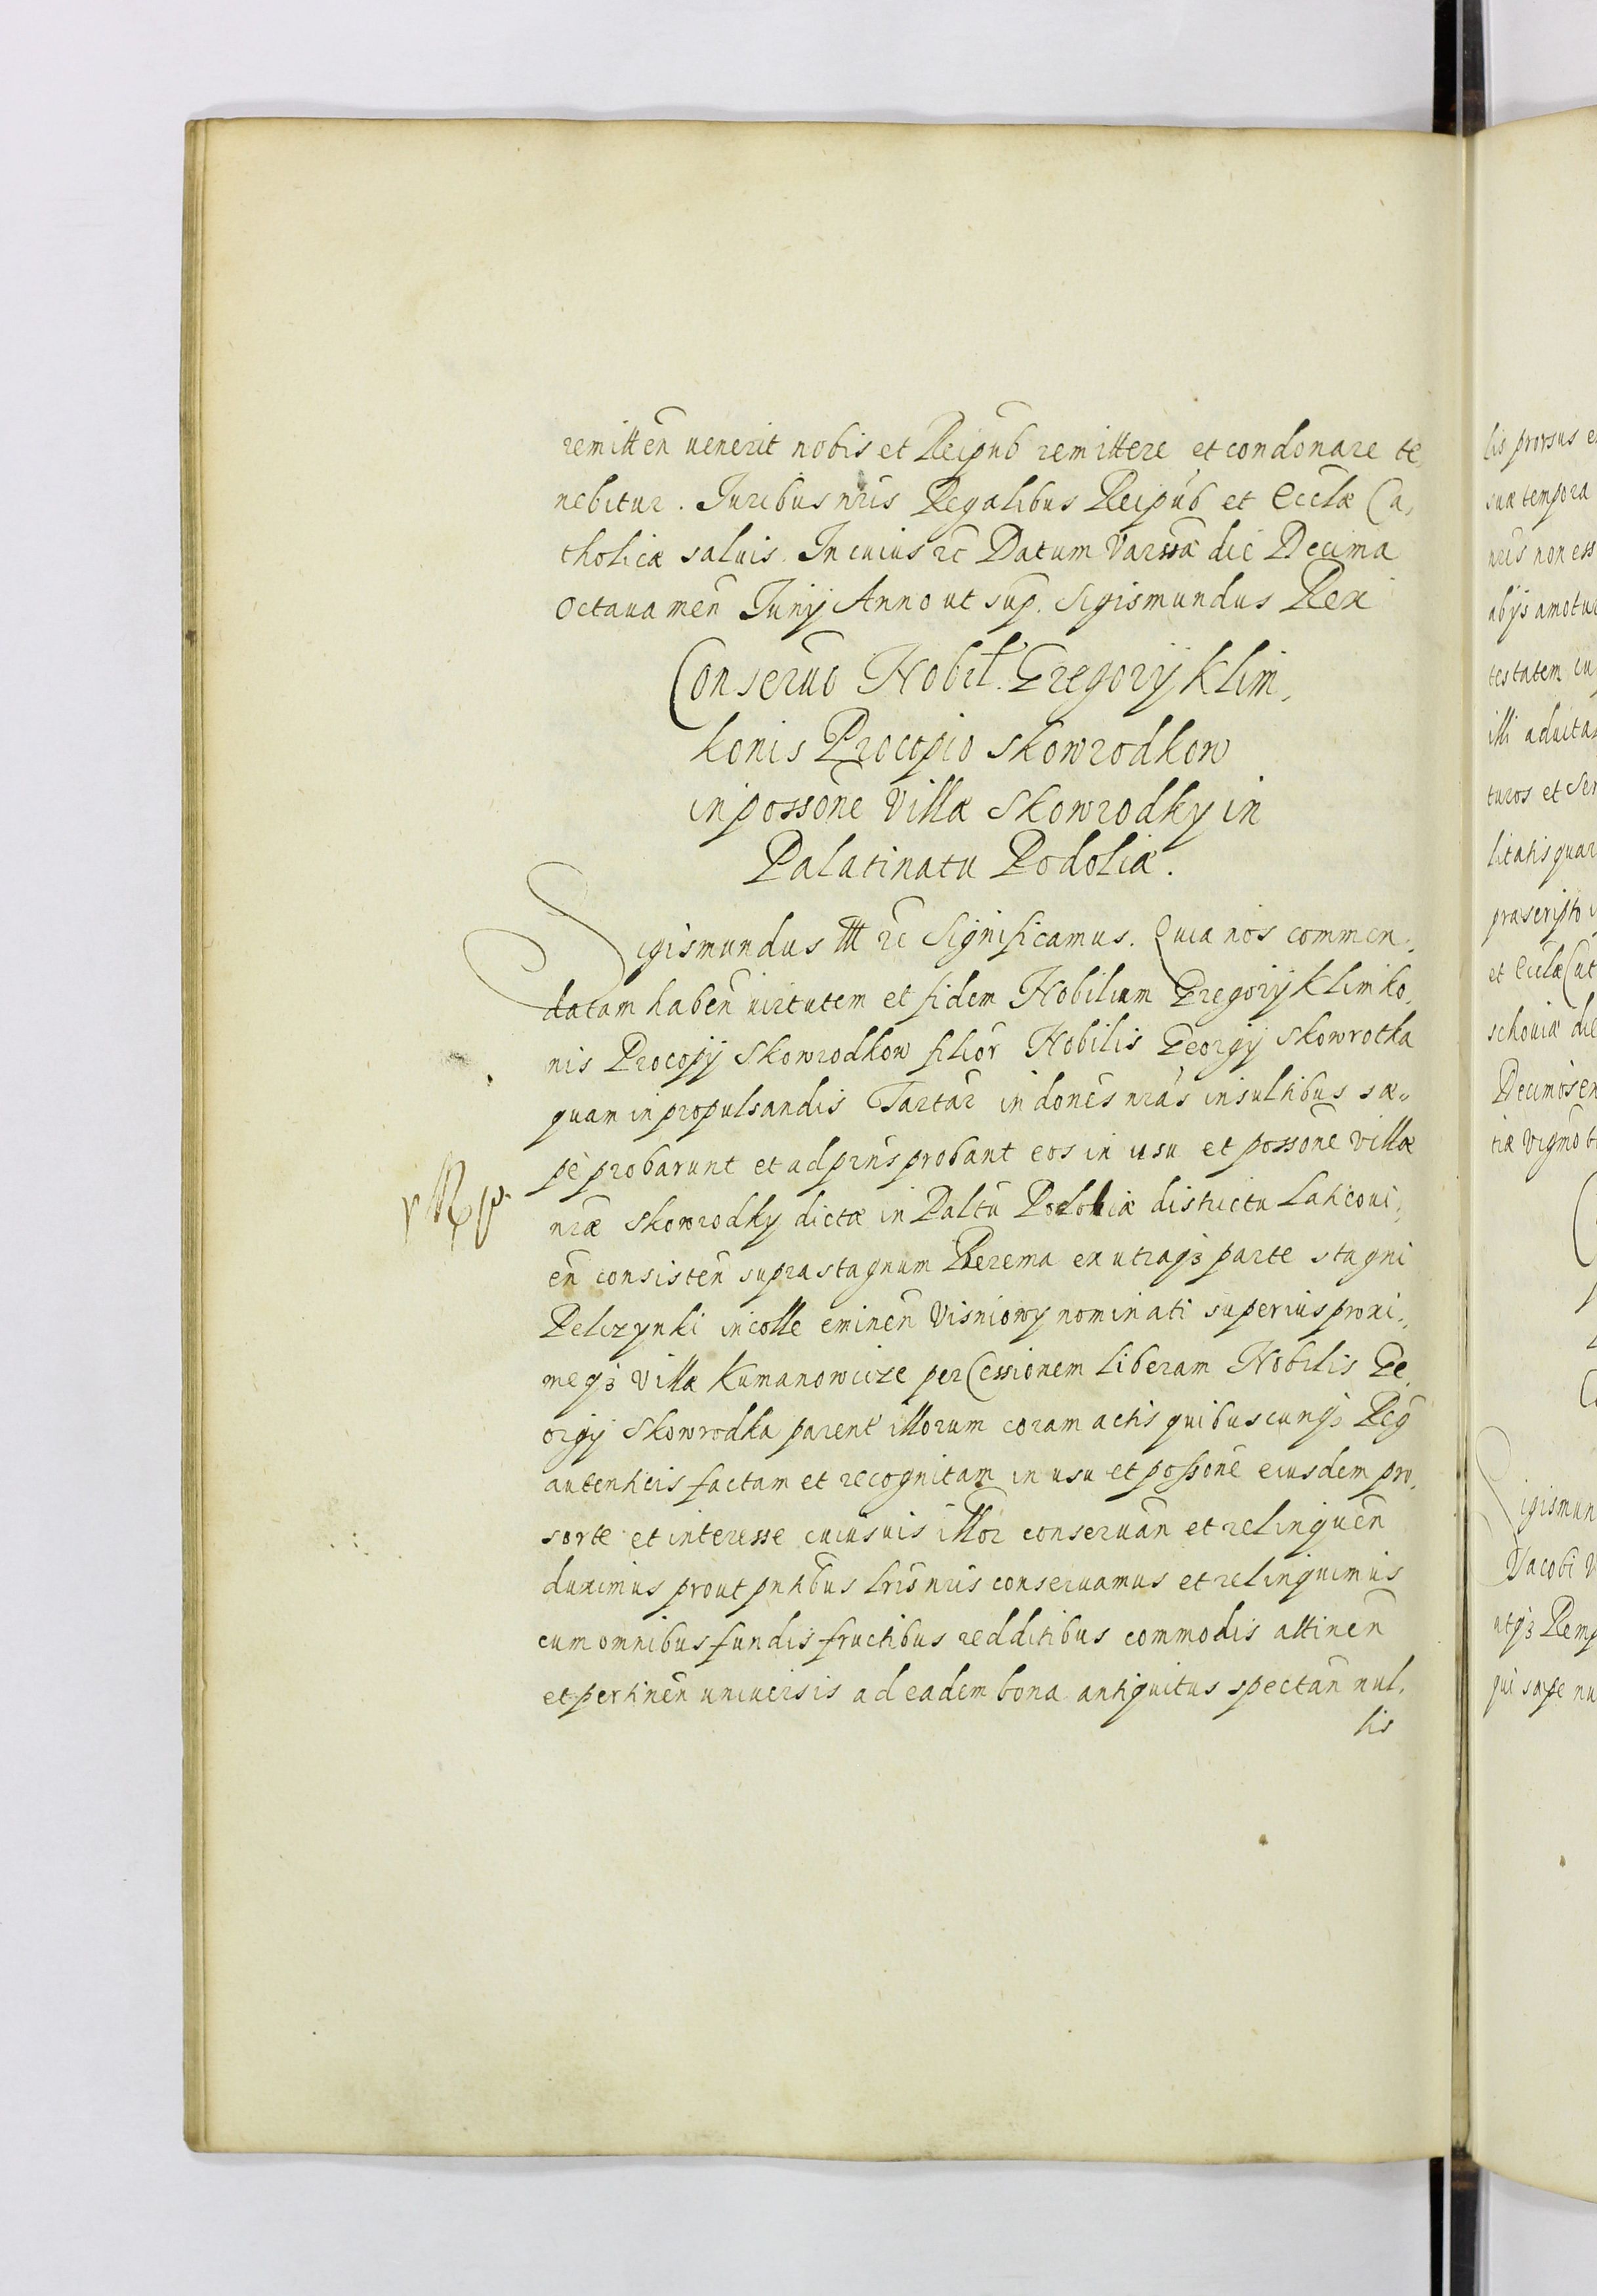 remitten̄ uenerit nobis et Reipub̄ remittere et condonare te,
nebitur. Iuribus nris Regalibus Reipub̄ et Eccl̄æ Ca,
tholicæ saluis. In cuius rc̄ Datum Varssa͞ die Decima
Octaua men̄ Iunij Anno ut sup. Sigismundus Rex
Conseruō Nobil. Gregorij Klim,
konis Procopio Skowrodkow
in possōne Villæ Skowrodky in
Palatinatu Podoliæ.
Sigismundus III rc̄ Significamus. Quia nos commen,
datam haben̄ uirtutem et fidem Nobilium Gregorij Klimko,
nis Procopij Skowrodkow filior̄ Nobilis Georgij Skowrotka
quam in propulsandis Tartar̄ in don̄es nrās insultibus sæ,,
pè probarunt et ad prn̄s probant eos in usu et possōne villæ
nræ Skowrodky dictæ in Paltū Podoliæ districtu Laticoui,,
en̄ consisten̄ supra stagnum Berema ex utraqȝ parte stagni
Pelczynki in colle eminen̄ Visniowy nominati superius proxi,,
meqȝ Villæ Kumanowcize per Cessionem liberam Nobilis Ge,
orgij Skowrodka parent illorum coram actis quibuscunqȝ Reḡ
autenticis factam et recognitam in usu et possōne eiusdem pro,
sorte et interesse cuiusuis illor̄ conseruan̄ et relinquen̄
duximus prout pntibus lris nris conseruamus et relinquimus
cum omnibus fundis fructibus redditibus commodis attinen̄
et pertinen̄ uniuersis ad eadem bona antiquitus spectan̄ nul,
lis
lis prorsus
suæ tempora
nris non ess
abijs amotu
testatem cu
illi aduita
turos et Ser
litatis quar
præscripto
et Eccl̄æ Cat
schouiæ die
Decimo sex
tiæ Vigmo
Sigismun
Jacobi
atqȝ Remp
qui sæpe nu